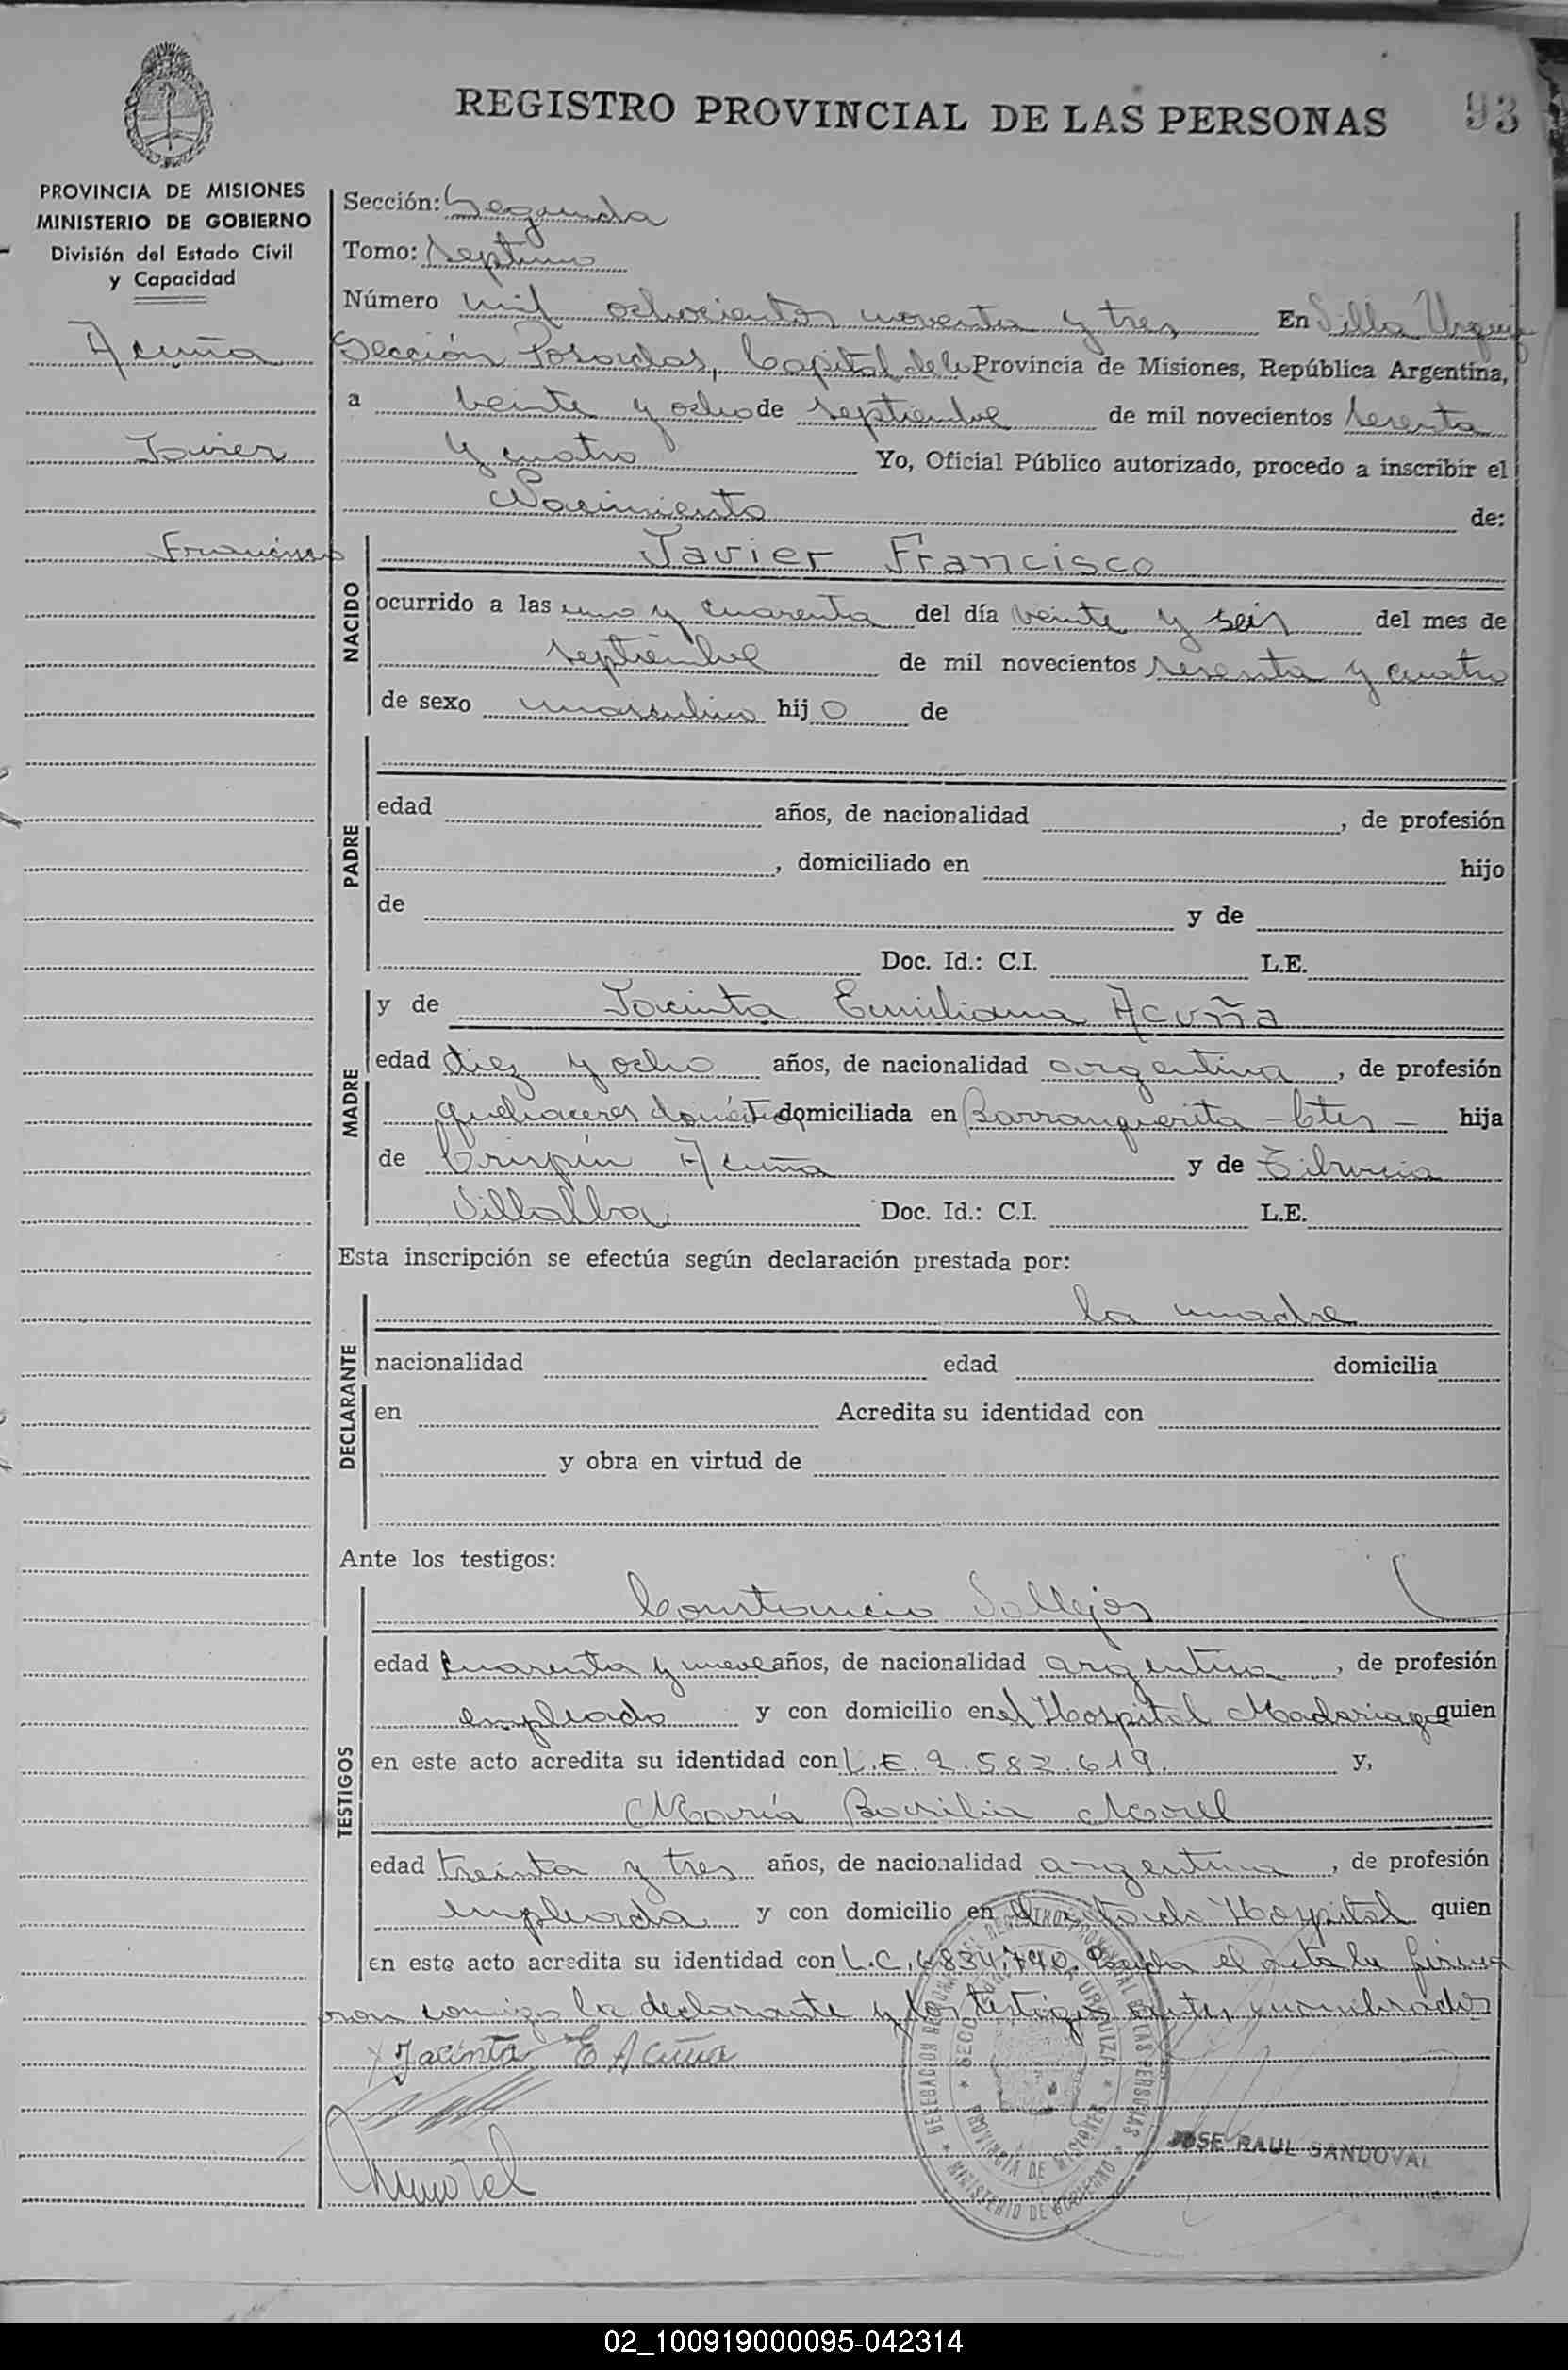 REGISTRO PROVINCIAL DE LAS PERSONAS 93
PROVINCIA DE MISIONES
MINISTERIO DE GOBIERNO
División del Estado Civil
y Capacidad
Acuña
Javier
Francisco
Sección: Segunda
Tomo: septimo
Número mil ochocientos noventa y tres En Villa Urquiza
Sección Posadas, Capital de la Provincia de Misiones, República Argentina,
a veinte y ocho de septiembre de mil novecientos sesenta
y cuatro Yo, Oficial Público autorizado, procedo a inscribir el
Nacimiento de:
NACIDO
Javier Francisco
ocurrido a las uno y cuarenta del día veinte y seis del mes de
septiembre de mil novecientos sesenta y cuatro
de sexo masculino hijo de
PADRE
edad años, de nacionalidad , de profesión
, domiciliado en hijo
de y de
Doc. Id.: C.I. L.E.
MADRE
y de Jacinta Emiliana Acuña
edad diez y ocho años, de nacionalidad argentina, de profesión
quehaceres domésticos domiciliada en Barranquerita - Ctes - hija
de Crispín Acuña y de Tiburcia
Villalba Doc. Id.: C.I. L.E.
Esta inscripción se efectúa según declaración prestada por:
DECLARANTE
la madre
nacionalidad edad domicilia
en Acredita su identidad con
y obra en virtud de
Ante los testigos:
TESTIGOS
Constancio Vallejos
edad cuarenta y nueve años, de nacionalidad argentina, de profesión
empleado y con domicilio en el Hospital Madariaga quien
en este acto acredita su identidad con L.E. 2.582.619. y,
María Basilia Morel
edad treinta y tres años, de nacionalidad argentina, de profesión
empleada y con domicilio en el citado Hospital quien
en este acto acredita su identidad con L.C. 6834.740. Leída el acta la firma
ron conmigo la declarante y los testigos antes nombrados
Jacinta E Acuña
JOSE RAUL SANDOVAL
02_100919000095-042314